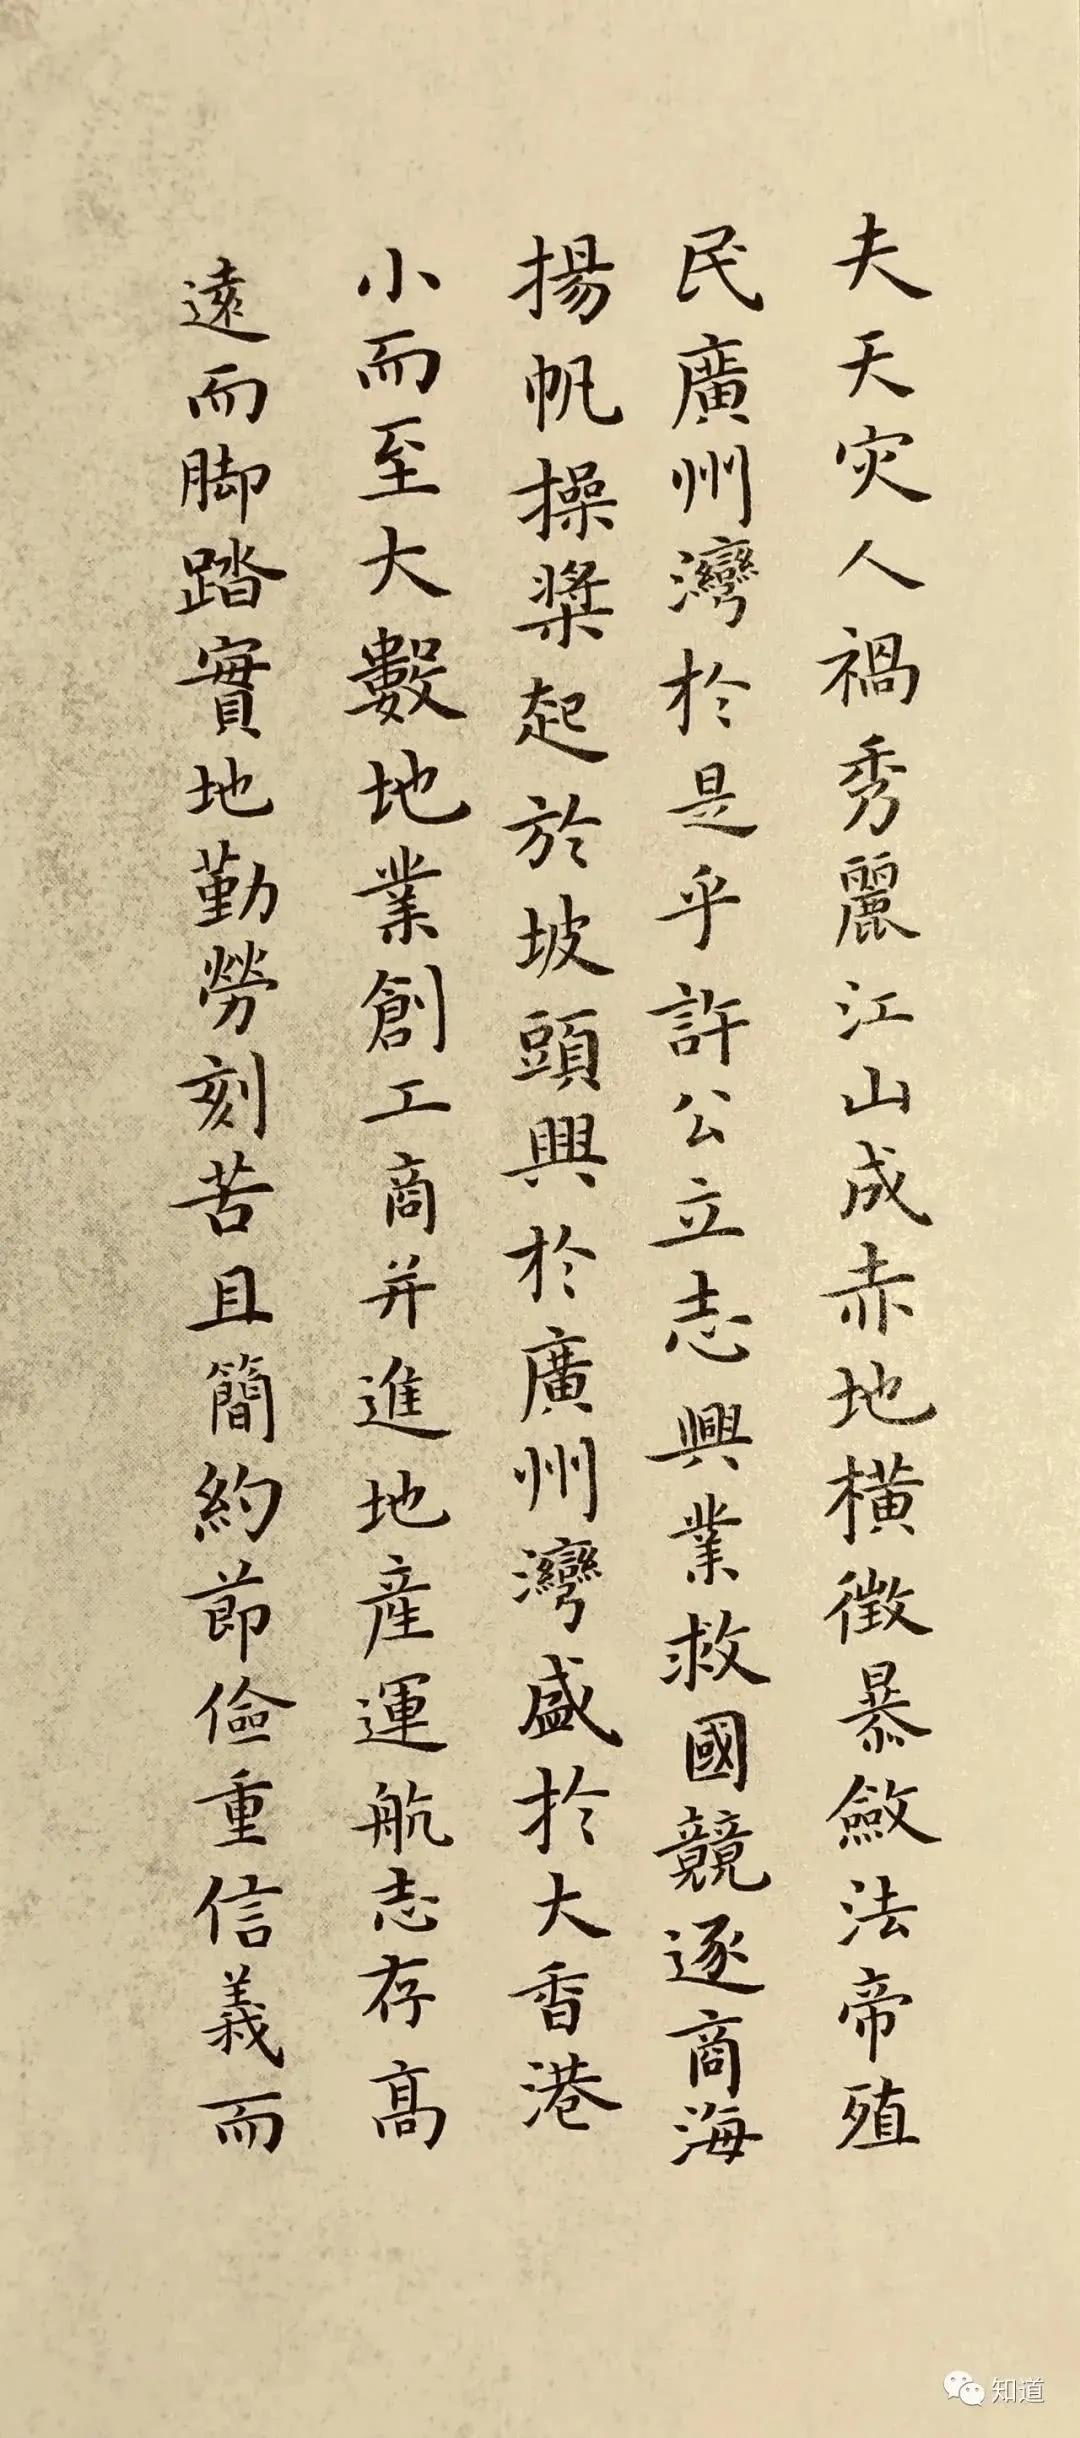 夫天灾人禍秀麗江山成赤地橫徵暴斂法帝殖
民廣州灣於是乎許公立志興業救國競逐商海
揚帆操槳起於坡頭興於廣州灣盛於大香港
小而至大數地業創工商并進地產運航志存高
遠而脚踏實地勤勞刻苦且簡約節儉重信義而
知道